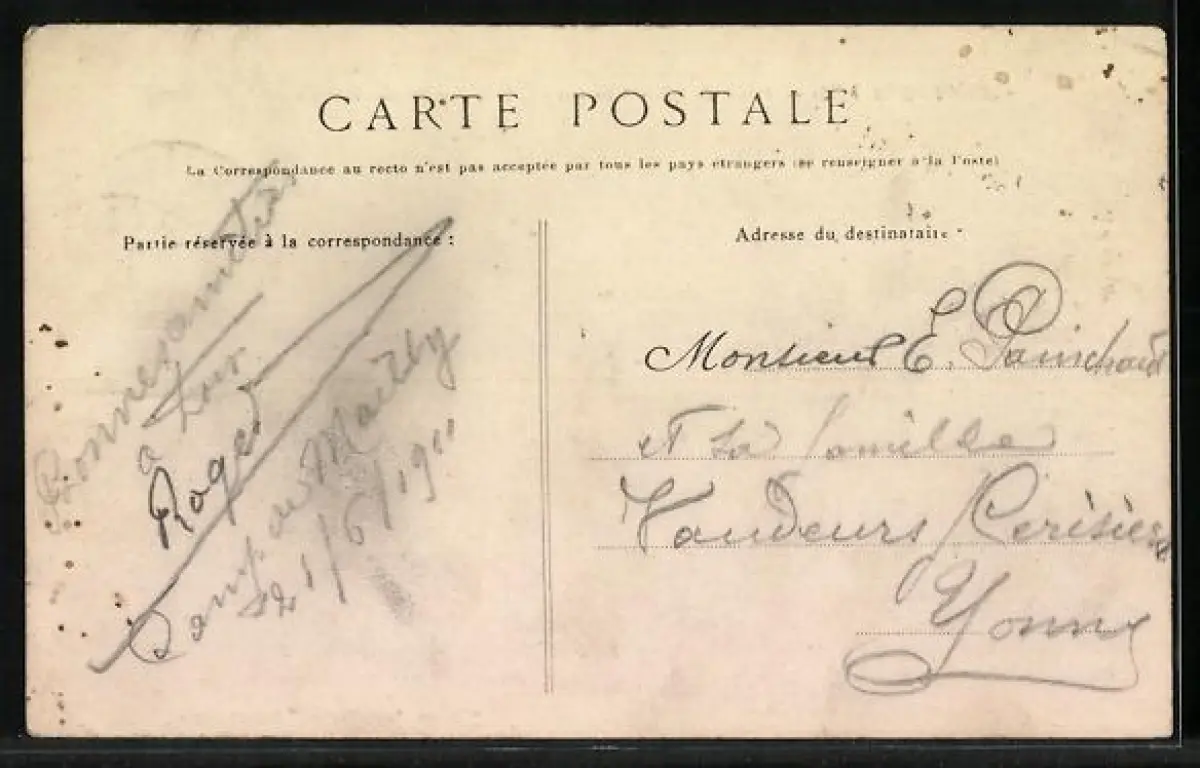 CARTE POSTALE
La Correspondance au recto n'est pas acceptée par tous les pays étrangers (se renseigner à la Poste)
Partie réservée à la correspondance :
Bonnes amitiés
à tous
Roger
Camp de Mailly
21/6/1911
Adresse du destinataire
Monsieur E. Painchaud
et sa famille
Vaudeurs / Cerisiers
Yonne